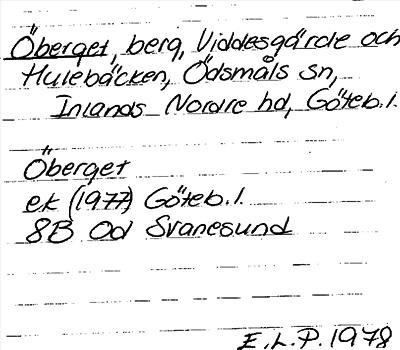 Öberget, berg, Viddesgärde och
Hulebäcken, Ödsmåls sn,
Inlands Nordre hd, Göteb. l.
Öberget
ek (1977) Göteb. l.
8B Od Svanesund
E. L. P. 1978